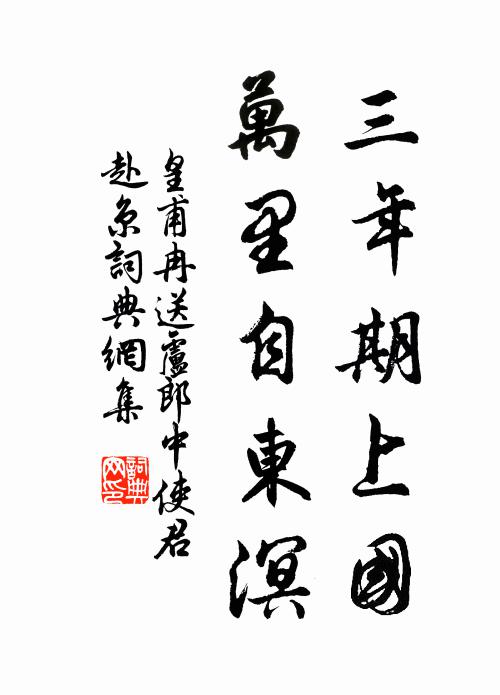 三年期上國
萬里自東溟
皇甫冉送盧郎中使君
赴京詞典網集
詞典網印